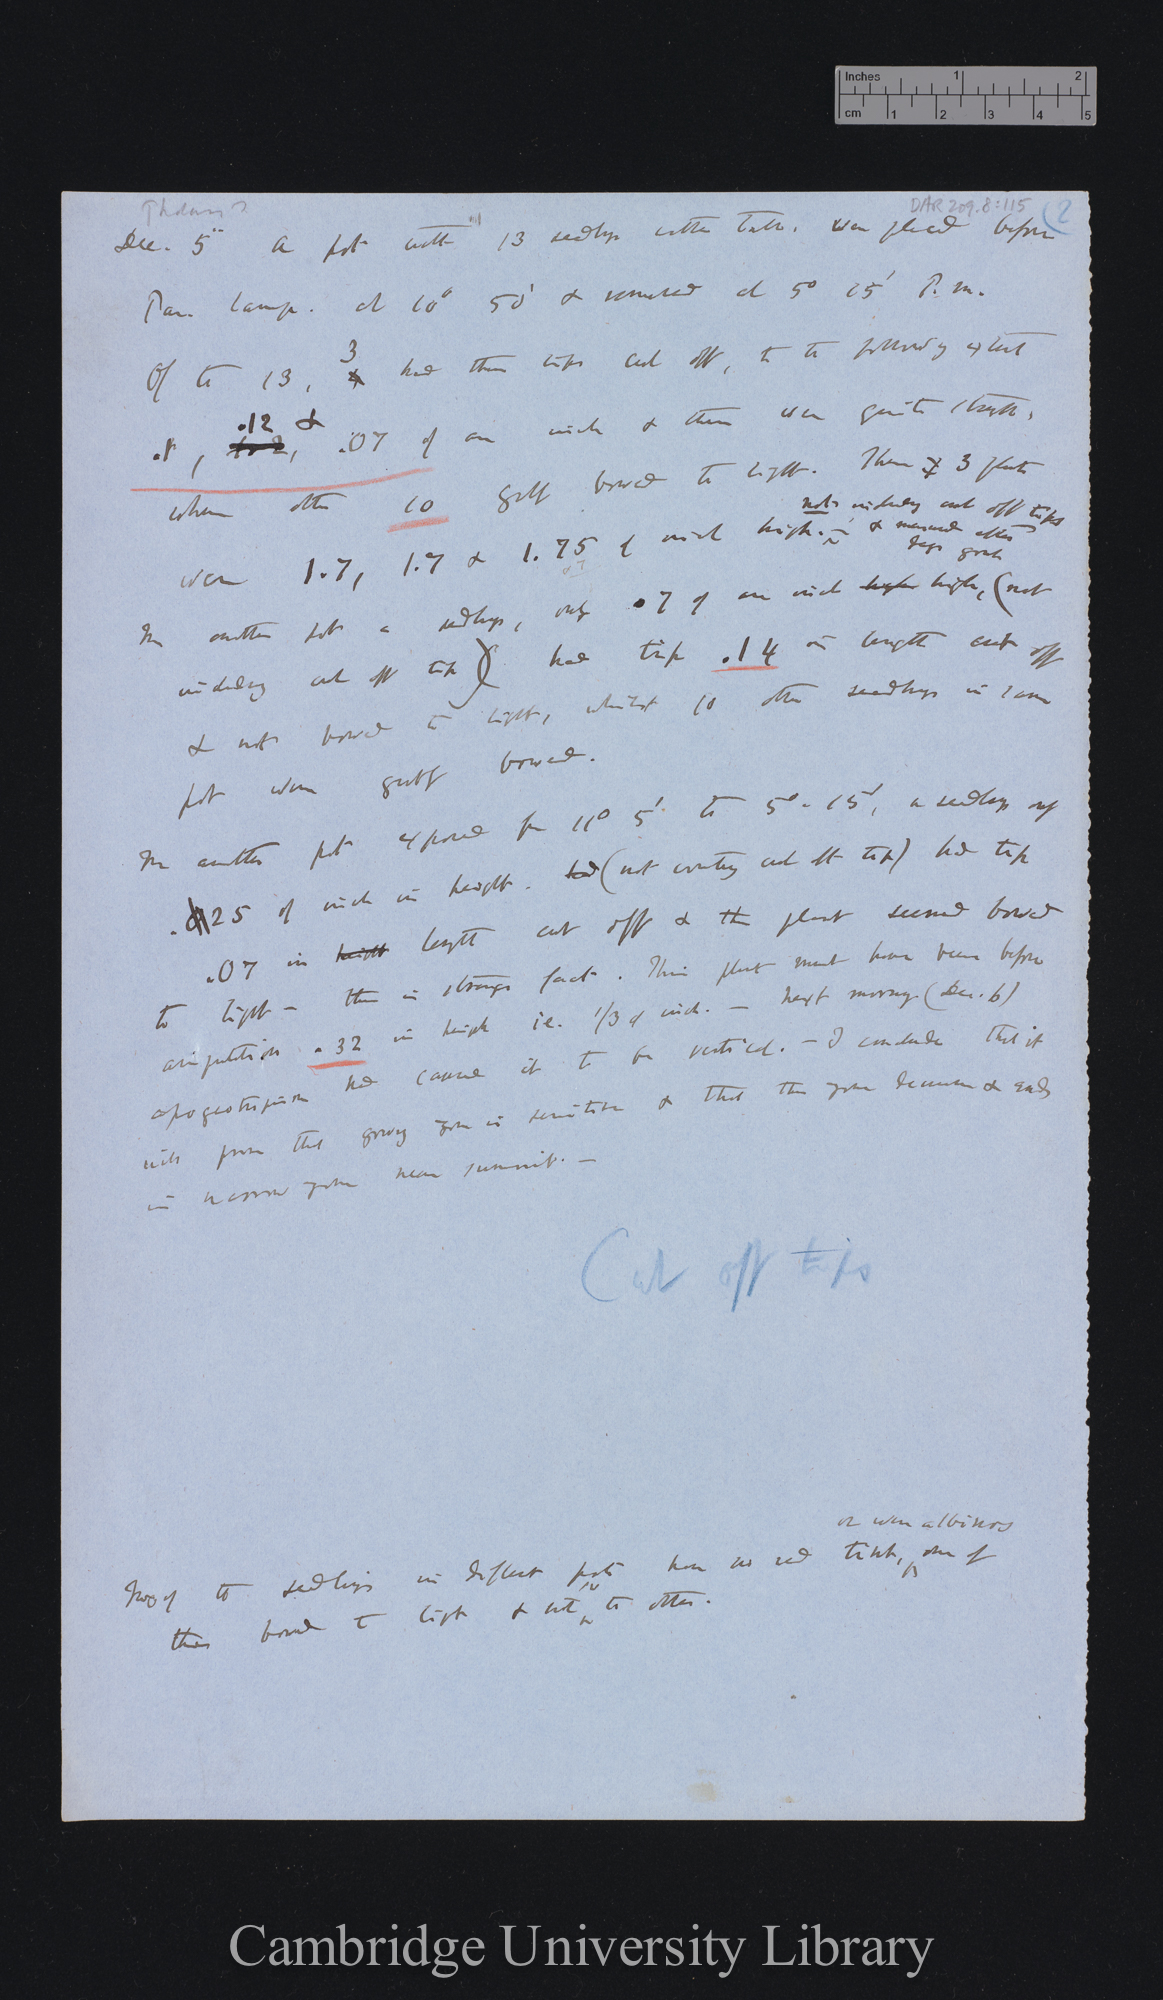 Inches 1 2
cm 1 2 3 4 5
DAR 209.8:115 (2
Dec. 5" A pot with 13 seedlings within were placed before
Par. Lamp. at 10° 50' & removed at 5° 15' P.m.
Of the 13, 3 had their tips cut off, to the following extent
.1, .12 & .07 of an inch & these were quite straight,
when other 10 greatly bowed to light. These 3 plants
were 1.7, 1.7 & 1.75 of inch high.
not including cut off tips
& measured after days growth
In another pot a seedling, only .7 of an inch high, (not
including cut off tip) had tip .14 in length cut off
& not bowed to light, whilst 10 other seedlings in same
pot were greatly bowed.
In another pot exposed for 11° 5' to 5° - 15', a seedling only
.25 of inch in height. (not counting cut off tip) had tip
.07 in length cut off & the plant seemed bowed
to light — this is strange fact. This plant must have been before
amputation .32 in height ie. 1/3 of inch. — Next morning (Dec. 6)
apogeotropism had caused it to be vertical. — I conclude that it
from that growing zone is sensitive & that this zone & ends
in narrow zone near summit. —
Cut off tips
or were albinos
of the seedlings in different pots have no red tint, one of
these bowed to light & not the other.
Cambridge University Library